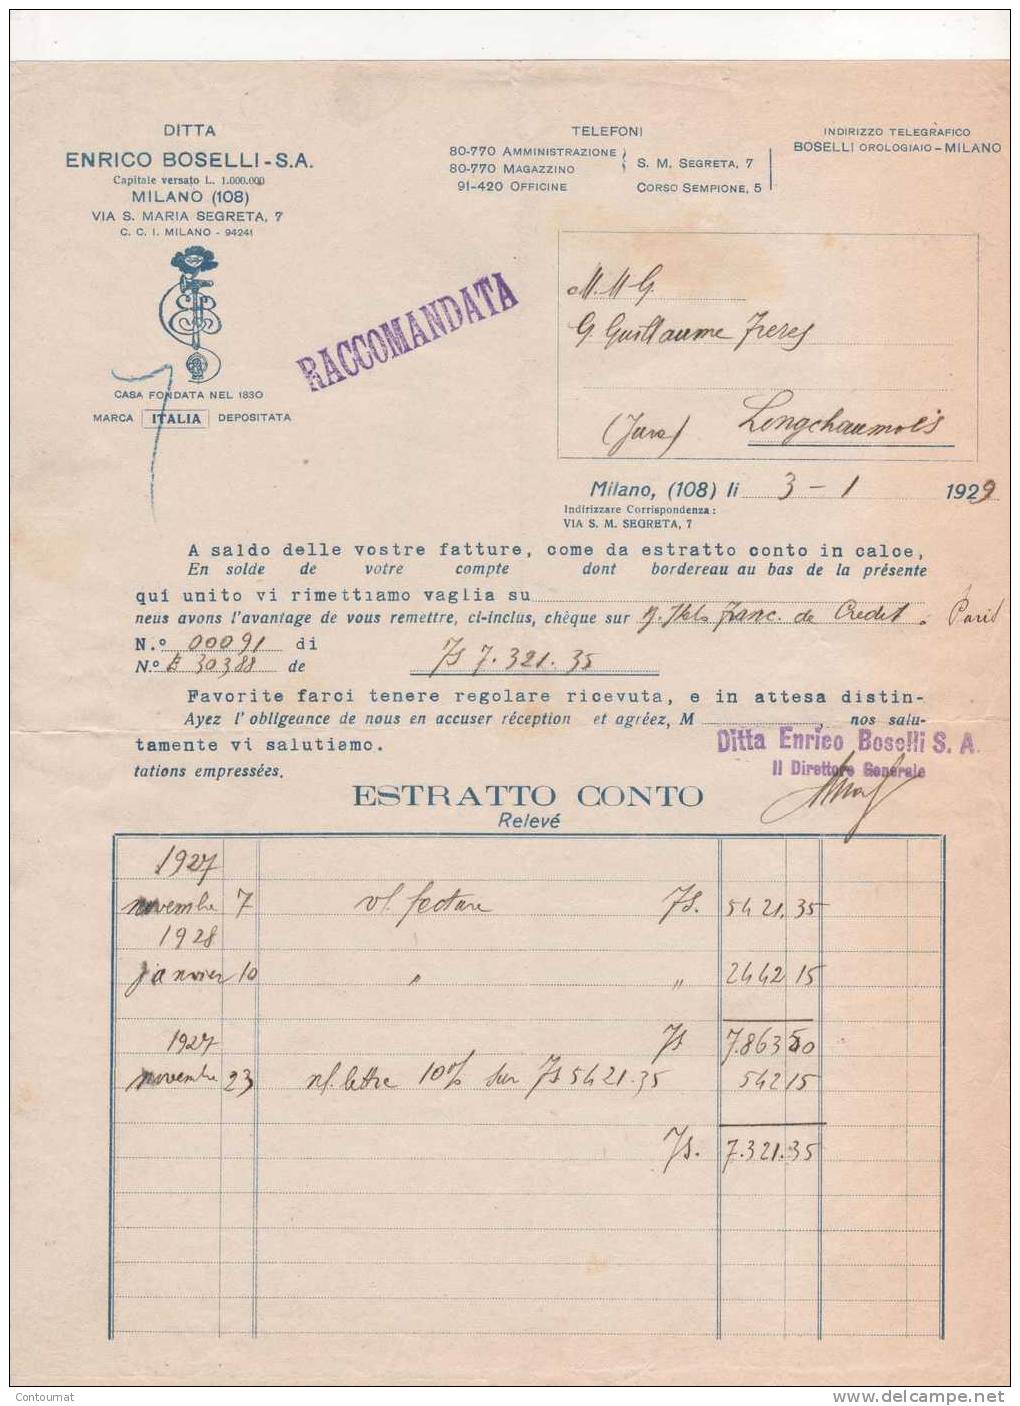 DITTA
ENRICO BOSELLI - S.A.
Capitale versato L. 1.000.000
MILANO (108)
VIA S. MARIA SEGRETA, 7
C. C. I. MILANO - 94241
CASA FONDATA NEL 1830
MARCA ITALIA DEPOSITATA
TELEFONI
80-770 AMMINISTRAZIONE
80-770 MAGAZZINO
S. M. SEGRETA, 7
91-420 OFFICINE
CORSO SEMPIONE, 5
INDIRIZZO TELEGRAFICO
BOSELLI OROLOGIAIO - MILANO
RACCOMANDATA
M. M G.
G. Guillaume Freres
(Jura) Longchaumois
Milano, (108) li 3 - 1 1929
Indirizzare Corrispondenza:
VIA S. M. SEGRETA, 7
A saldo delle vostre fatture, come da estratto conto in calce,
En solde de votre compte dont bordereau au bas de la présente
qui unito vi rimettiamo vaglia su
neus avons l'avantage de vous remettre, ci-inclus, chèque sur Franc. de Credit. Paris
N.o 00091 di
N.o B 30388 de Fs 7.321.35
Favorite farci tenere regolare ricevuta, e in attesa distin-
Ayez l'obligeance de nous en accuser réception et agréez, M , nos salu-
tamente vi salutiamo.
tations empressées.
Ditta Enrico Boselli S. A.
Il Direttore Generale
ESTRATTO CONTO
Relevé
1927
novembre 7 vf. facture Fs. 5421.35
1928
janvier 10 " " 2442 15
Fs 7.863 50
1927
novembre 23 nf. lettre 10% sur Fs 5421.35 542 15
Fs. 7.321.35
Contournat
www.delcampe.net